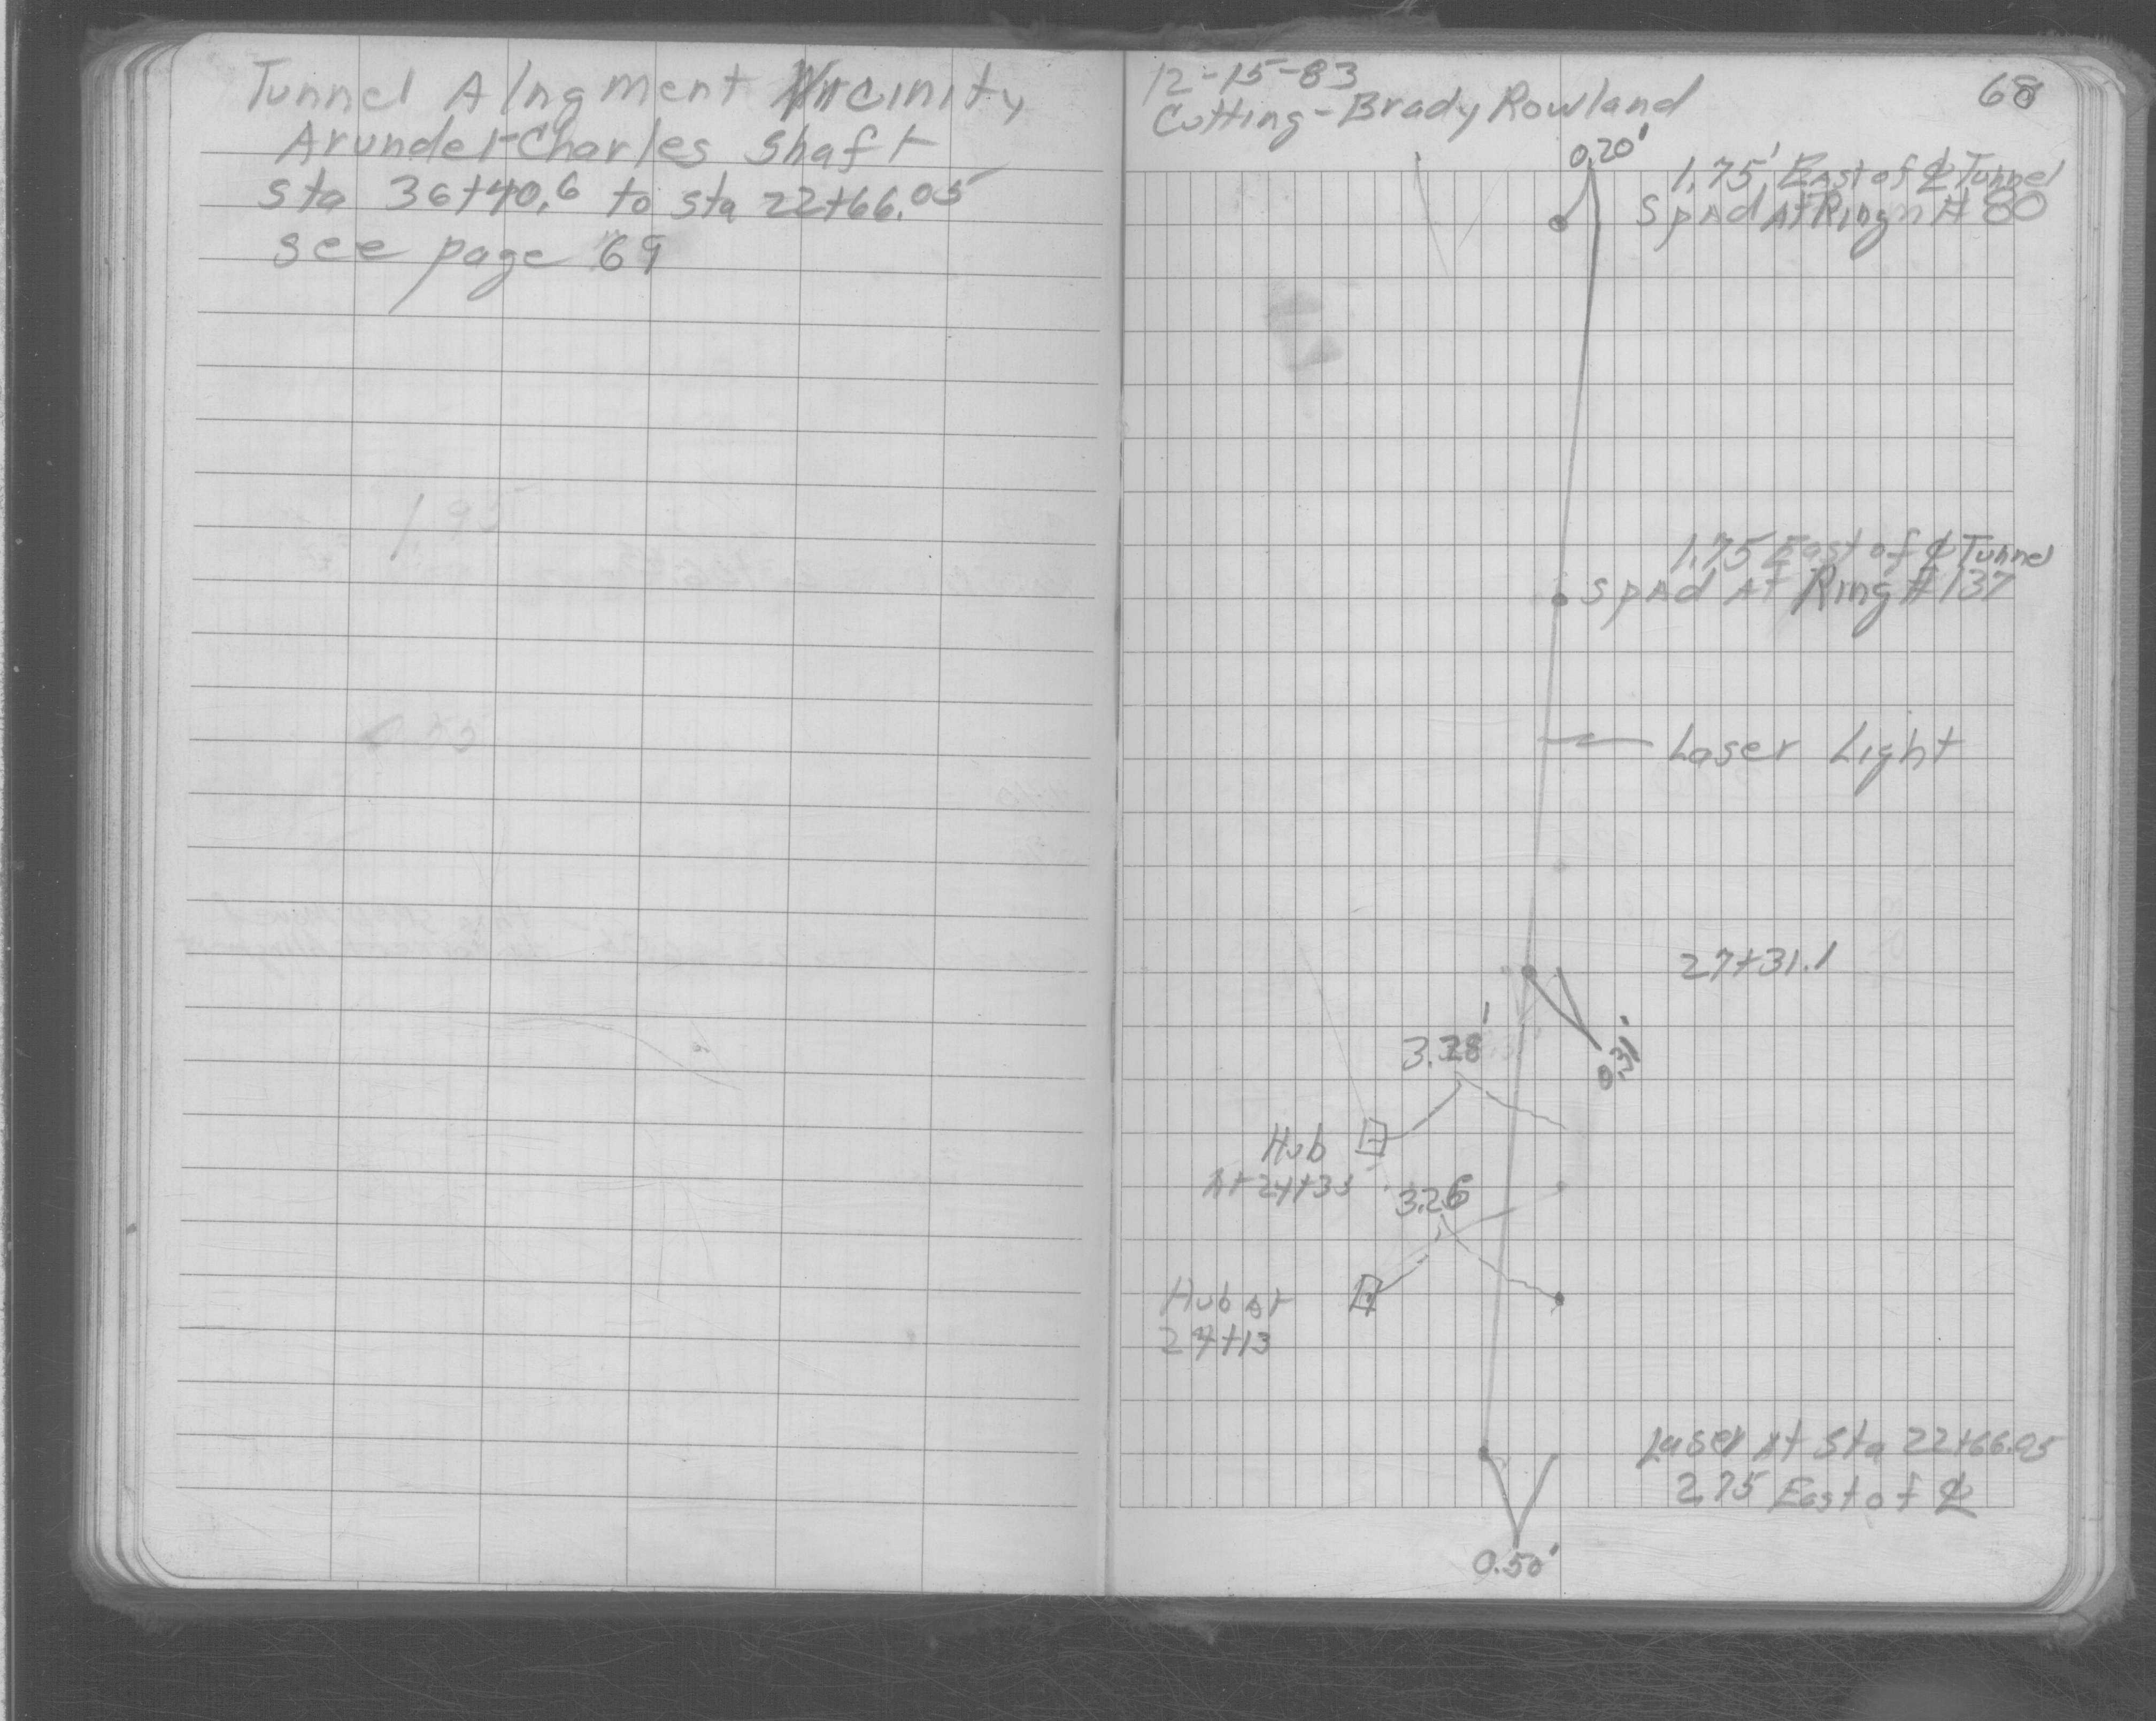 Tunnel Alngment Vicinity
Arundel-Charles Shaft
Sta 36+40.6 to Sta 22+66.05
See page 69
12-15-83
Cutting-Brady Rowland
68
0.20'
1.75' East of ℄ Tunnel
Spad At Ring # 80
1.75 East of ℄ Tunnel
Spad At Ring #137
Laser Light
27+31.1
0.31'
3.28'
Hub
At 24+33
3.26
Hub At
24+13
Laser At Sta 22+66.05
2.75 East of ℄
0.50'